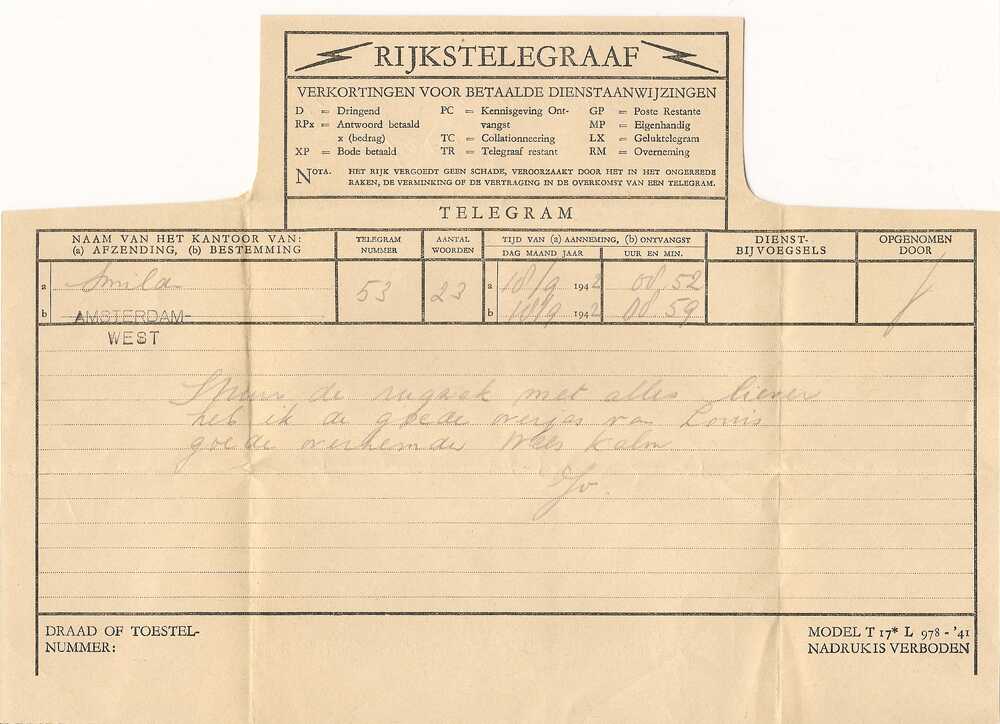 RIJKSTELEGRAAF
VERKORTINGEN VOOR BETAALDE DIENSTAANWIJZINGEN
D = Dringend
RPx = Antwoord betaald
x (bedrag)
XP = Bode betaald
PC = Kennisgeving Ont-
vangst
TC = Collationneering
TR = Telegraaf restant
GP = Poste Restante
MP = Eigenhandig
LX = Geluktelegram
RM = Overneming
NOTA. HET RIJK VERGOEDT GEEN SCHADE, VEROORZAAKT DOOR HET IN HET ONGEREEDE
RAKEN, DE VERMINKING OF DE VERTRAGING IN DE OVERKOMST VAN EEN TELEGRAM.
TELEGRAM
NAAM VAN HET KANTOOR VAN:
(a) AFZENDING, (b) BESTEMMING
TELEGRAM
NUMMER
AANTAL
WOORDEN
TIJD VAN (a) AANNEMING, (b) ONTVANGST
DAG MAAND JAAR
UUR EN MIN.
DIENST-
BIJVOEGSELS
OPGENOMEN
DOOR
a Smilde
53
23
a 18/9 1942 08 52
b AMSTERDAM-
WEST
b 18/9 1942 08 59
Stuur de rugzak met alles liever
heb ik de goede overjas van Louis
goede overhemden Wees kalm
Jo.
DRAAD OF TOESTEL-
NUMMER:
MODEL T 17* L 978 - '41
NADRUK IS VERBODEN